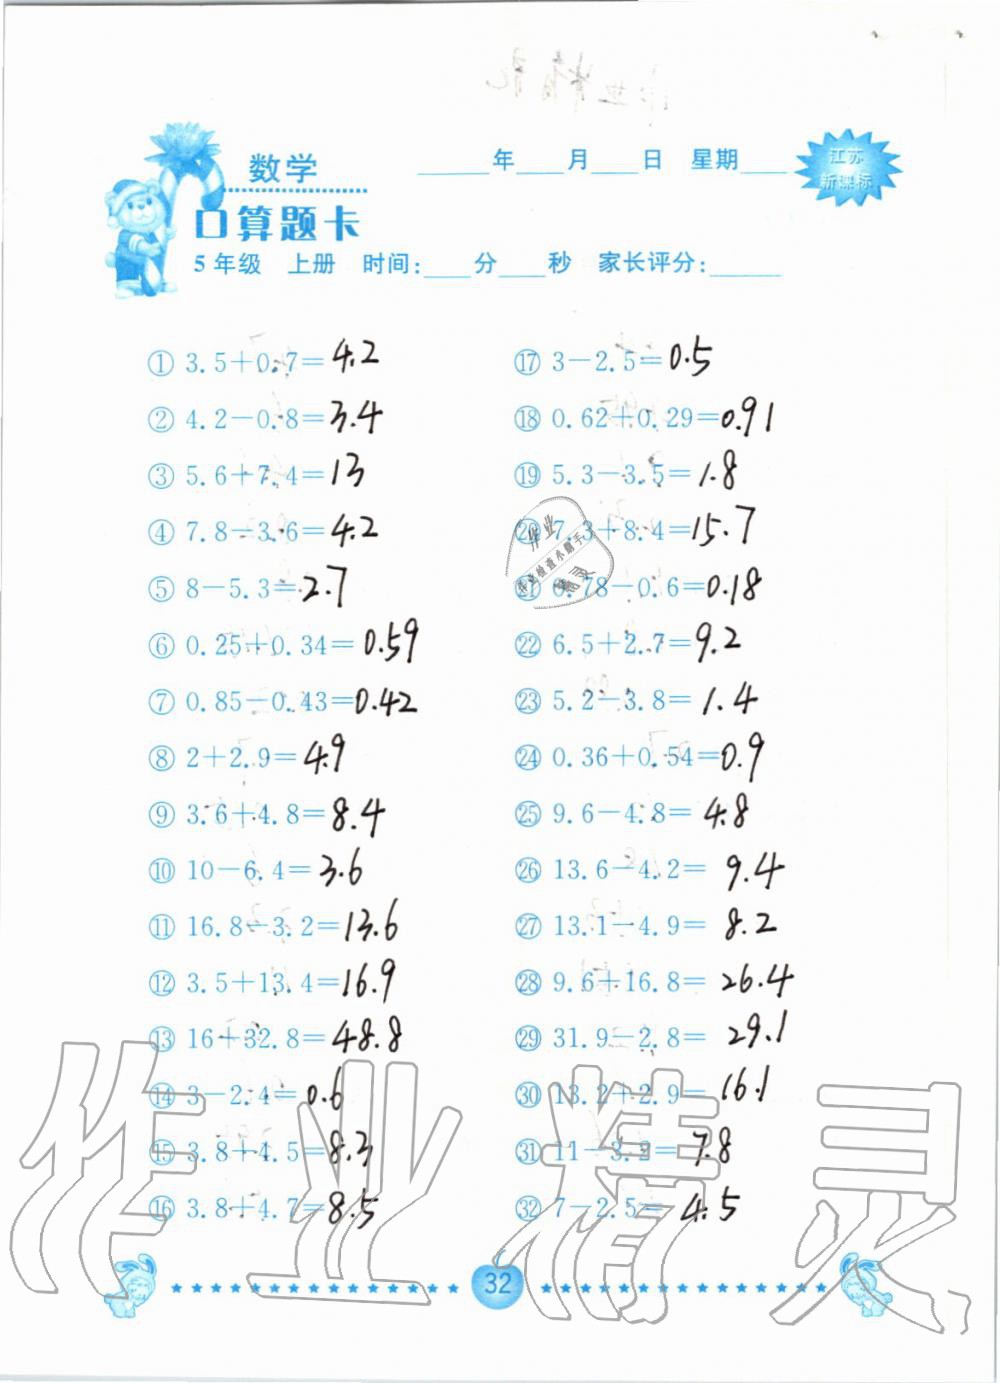 数学
____年____月____日 星期____
江苏
新课标
口算题卡
5年级 上册 时间:____分____秒 家长评分:____
① 3.5+0.7=4.2
② 4.2-0.8=3.4
③ 5.6+7.4=13
④ 7.8-3.6=4.2
⑤ 8-5.3=2.7
⑥ 0.25+0.34=0.59
⑦ 0.85-0.43=0.42
⑧ 2+2.9=4.9
⑨ 3.6+4.8=8.4
⑩ 10-6.4=3.6
⑪ 16.8-3.2=13.6
⑫ 3.5+13.4=16.9
⑬ 16+32.8=48.8
⑭ 3-2.4=0.6
⑮ 3.8+4.5=8.3
⑯ 3.8+4.7=8.5
⑰ 3-2.5=0.5
⑱ 0.62+0.29=0.91
⑲ 5.3-3.5=1.8
⑳ 7.3+8.4=15.7
㉑ 0.78-0.6=0.18
㉒ 6.5+2.7=9.2
㉓ 5.2-3.8=1.4
㉔ 0.36+0.54=0.9
㉕ 9.6-4.8=4.8
㉖ 13.6-4.2=9.4
㉗ 13.1-4.9=8.2
㉘ 9.6+16.8=26.4
㉙ 31.9-2.8=29.1
㉚ 13.2+2.9=16.1
㉛ 11-3.2=7.8
㉜ 7-2.5=4.5
作业精灵
32